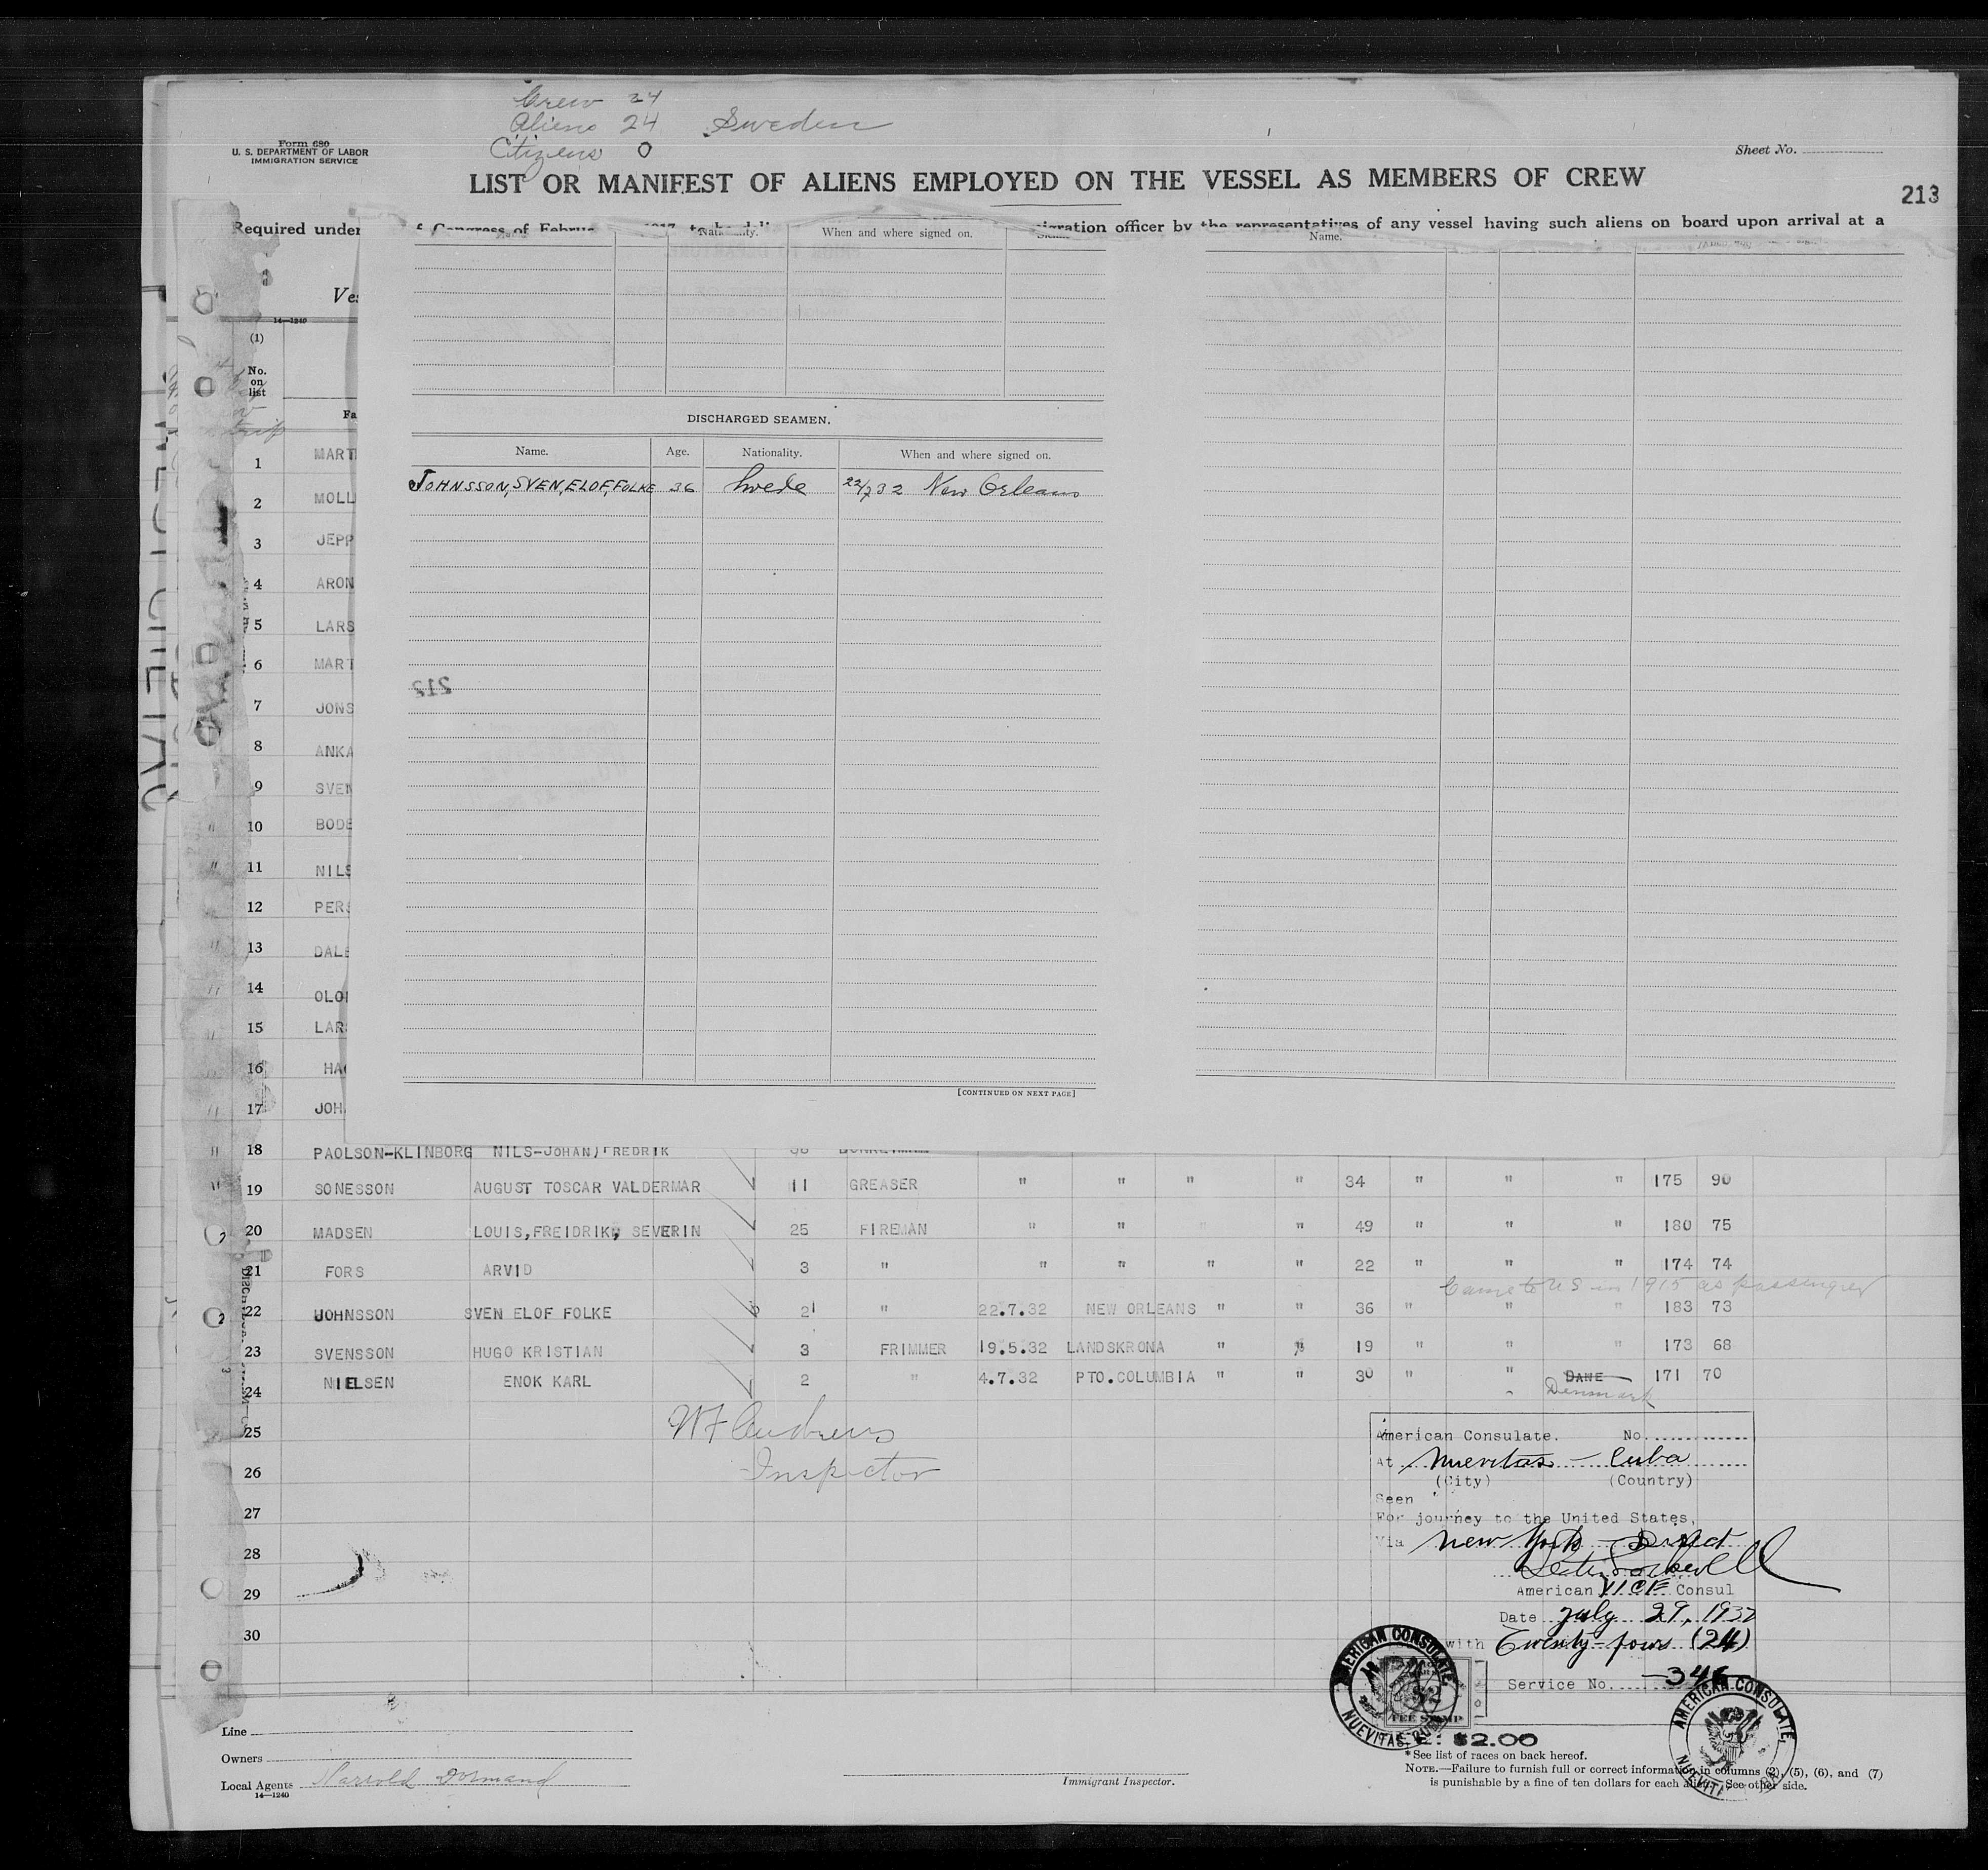 Crew 24
Aliens 24 Sweden
Citizens 0
Form 680
U. S. DEPARTMENT OF LABOR
IMMIGRATION SERVICE
Sheet No.
LIST OR MANIFEST OF ALIENS EMPLOYED ON THE VESSEL AS MEMBERS OF CREW
213
Required under
of Congress of
officer by the representatives of any vessel having such aliens on board upon arrival at a
Nationality. When and where signed on.
Name.
14—1240
(1)
No.
on
list
DISCHARGED SEAMEN.
Name. Age. Nationality. When and where signed on.
JOHNSSON, SVEN, ELOF, FOLKE 36 Swede 22/7 32 New Orleans
1 MART
2 MOLL
3 JEPP
4 ARON
5 LARS
6 MART
212
7 JONS
8 ANKA
9 SVEN
10 BODE
11 NILS
12 PERS
13 DALE
14 OLO
15 LAR
16 HA
17 JOH
[CONTINUED ON NEXT PAGE]
18 PAOLSON-KLINBORG NILS-JOHAN, FREDRIK
19 SONESSON AUGUST TOSCAR VALDERMAR 11 GREASER " " " " 34 " " " 175 90
20 MADSEN LOUIS, FREIDRIK, SEVERIN 25 FIREMAN " " " " 49 " " " 180 75
21 FORS ARVID 3 " " " " " 22 " " " 174 74
Came to US in 1915 as passenger
22 JOHNSSON SVEN ELOF FOLKE 21 " 22.7.32 NEW ORLEANS " " 36 " " " 183 73
23 SVENSSON HUGO KRISTIAN 3 FRIMMER 19.5.32 LANDSKRONA " " 19 " " " 173 68
24 NIELSEN ENOK KARL 2 " 4.7.32 PTO.COLUMBIA " " 30 " " DANE 171 70
Denmark
25
26
27
28
29
30
W F Andrews
Inspector
American Consulate. No.
At Nuevitas - Cuba
(City) (Country)
Seen
For journey to the United States,
Via New York - Direct
American VICE Consul
Date July 29, 1932
with Twenty-four (24)
Service No. -346
AMERICAN CONSULATE,
NUEVITAS, CUBA
FEE STAMP
$2.00
AMERICAN CONSULATE,
Line
Owners
Local Agents
14—1240
Immigrant Inspector.
*See list of races on back hereof.
NOTE.—Failure to furnish full or correct information in columns (2), (5), (6), and (7)
is punishable by a fine of ten dollars for each alien. See other side.